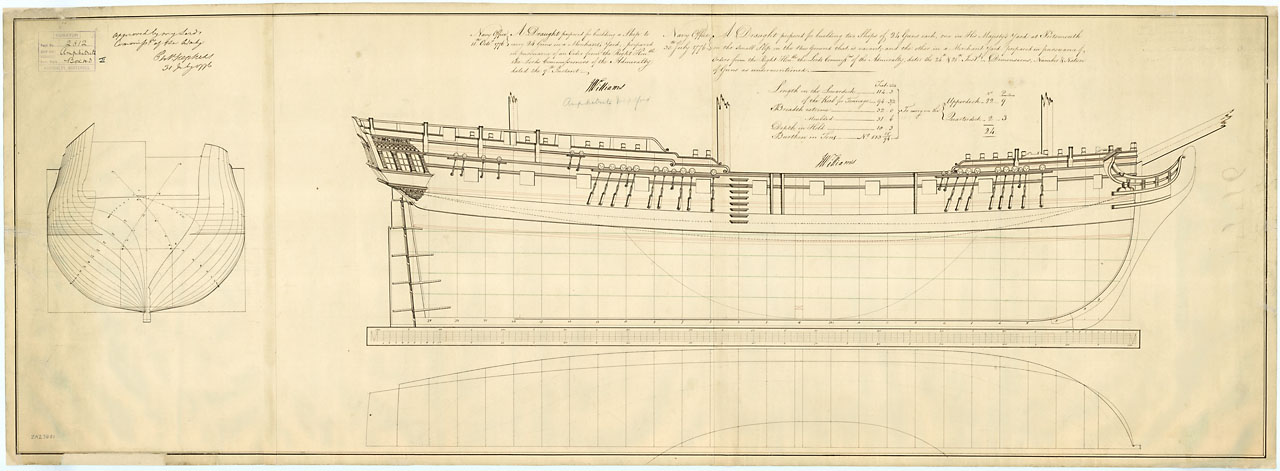 2512
Amphitrite
approved by my Lords
Commiss.rs of the Navy
Phil Stephens
31 July 1776
Navy Office
11th Octr 1776
A Draught proposed for building a Ship to
carry 24 Guns in a Merchants Yard, prepared
in pursuance of an Order from the Right Honble
the Lords Commissioners of the Admiralty
dated the 9th Instant
J Williams
Amphitrite
Navy Office
30th July 1776
A Draught proposed for building two Ships of 24 Guns each, one in His Majestys Yard at Portsmouth
on the small Slip in the that is vacant, and the other in a Merchant Yard, prepared in pursuance of
Orders from the Right Honble the Lords Commissrs of the Admiralty, dated the & Instt. Dimensions, Number & Nature
of Guns as undermentioned
Feet Ins
Length on the Gundeck 114.3
of the Keel for Tonnage
Breadth extreme 32.0
Moulded 31.6
Depth in Hold 10.3
Burthen in Tons No
To carry on the
No Pounders
Upperdeck 22 9
Quarterdeck 2 3
24
J Williams